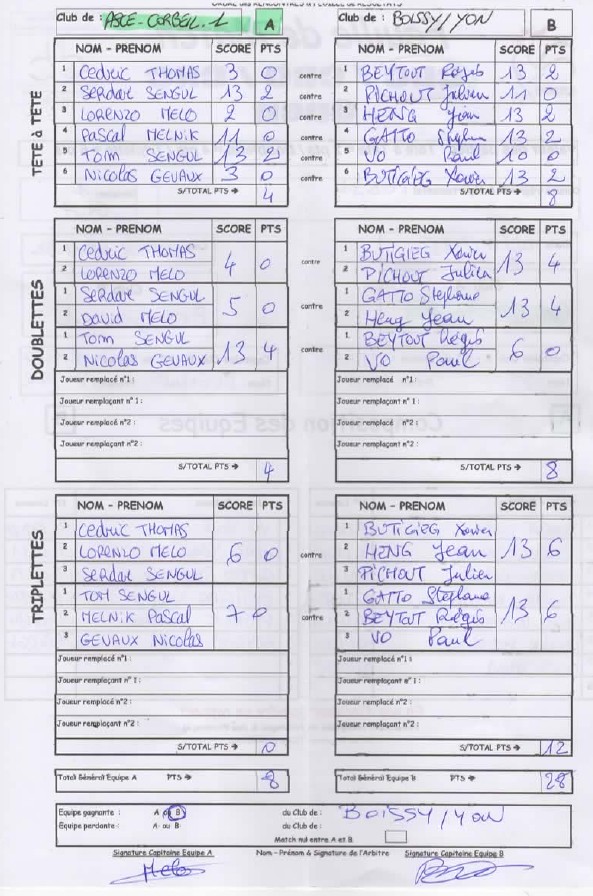 Club de : ASCE-CORBEIL.1 A Club de : BOISSY/YON B
TÊTE à TÊTE
NOM - PRENOM SCORE PTS NOM - PRENOM SCORE PTS
1 Cedric THOMAS 3 0 contre 1 BEYTOUT Régis 13 2
2 SERdar SENGUL 13 2 2 PICHOUT Julien 11 0
3 LORENZO MELO 2 0 contre 3 HENG Jean 13 2
4 Pascal MELNIK 11 0 contre 4 GATTO Stephane 13 2
5 Tom SENGUL 13 2 contre 5 VO Paul 10 0
6 Nicolas GEVAUX 3 0 contre 6 BUTIGIEG Xavier 13 2
S/TOTAL PTS → 4 S/TOTAL PTS → 8
DOUBLETTES
NOM - PRENOM SCORE PTS NOM - PRENOM SCORE PTS
1 Cedric THOMAS 4 0 contre 1 BUTIGIEG Xavier 13 4
2 LORENZO MELO 2 PICHOUT Julien
1 SERdar SENGUL 5 0 contre 1 GATTO Stephane 13 4
2 David MELO 2 Heng Jean
1 Tom SENGUL 13 4 contre 1 BEYTOUT Régis 6 0
2 Nicolas GEVAUX 2 VO Paul
Joueur remplacé n°1 : Joueur remplacé n°1 :
Joueur remplaçant n° 1 : Joueur remplaçant n° 1 :
Joueur remplacé n°2 : Joueur remplacé n°2 :
Joueur remplaçant n°2 : Joueur remplaçant n°2 :
S/TOTAL PTS → 4 S/TOTAL PTS → 8
TRIPLETTES
NOM - PRENOM SCORE PTS NOM - PRENOM SCORE PTS
1 Cedric THOMAS 1 BUTIGIEG Xavier
2 LORENZO MELO 6 0 contre 2 HENG Jean 13 6
3 SERdar SENGUL 3 PICHOUT Julien
1 TOM SENGUL 1 GATTO Stephane
2 MELNIK Pascal 7 0 contre 2 BEYTOUT Régis 13 6
3 GEVAUX Nicolas 3 VO Paul
Joueur remplacé n°1 : Joueur remplacé n°1 :
Joueur remplaçant n° 1 : Joueur remplaçant n° 1 :
Joueur remplacé n°2 : Joueur remplacé n°2 :
Joueur remplaçant n°2 : Joueur remplaçant n°2 :
S/TOTAL PTS → 0 S/TOTAL PTS → 12
Total Général Equipe A PTS → 8 Total Général Equipe B PTS → 28
Equipe gagnante : A ou B du Club de : BOISSY/YON
Equipe perdante : A ou B du Club de :
Match nul entre A et B
Signature Capitaine Equipe A Nom - Prénom & Signature de l'Arbitre Signature Capitaine Equipe B
Melo